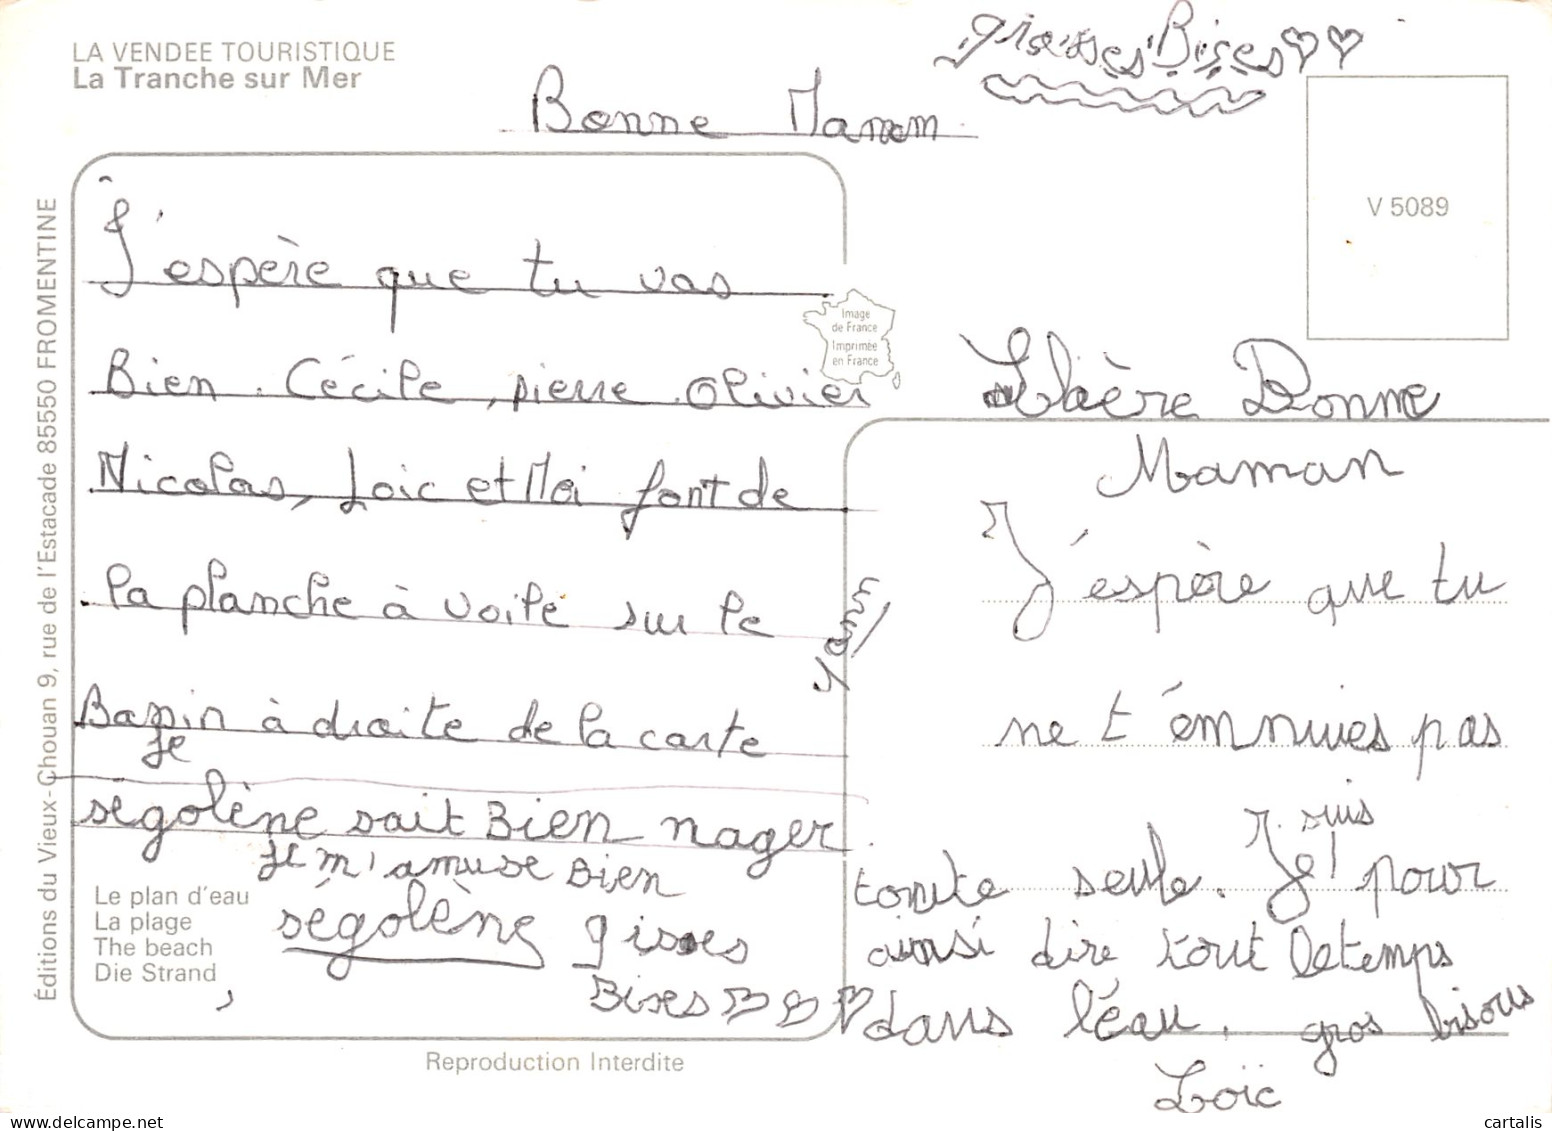 LA VENDEE TOURISTIQUE
La Tranche sur Mer
grosses Bises
Bonne Maman
V 5089
J'espère que tu vas
Bien. Cécile, pierre Olivier
Nicolas, Loic et Moi font de
la planche à voile sur le
Bassin à droite de la carte
Je
ségolène sait Bien nager
Je m'amuse Bien
ségolène
Bises
Image
de France
Imprimée
en France
Chère Bonne
Maman
J'espère que tu
ne t'émnuies pas
toute seule. Je suis pour
ainsi dire tout letemps
dans l'éau. gros bisous
Loïc
Le plan d'eau
La plage
The beach
Die Strand
Reproduction Interdite
Éditions du Vieux-Chouan 9, rue de l'Estacade 85550 FROMENTINE
cartalis